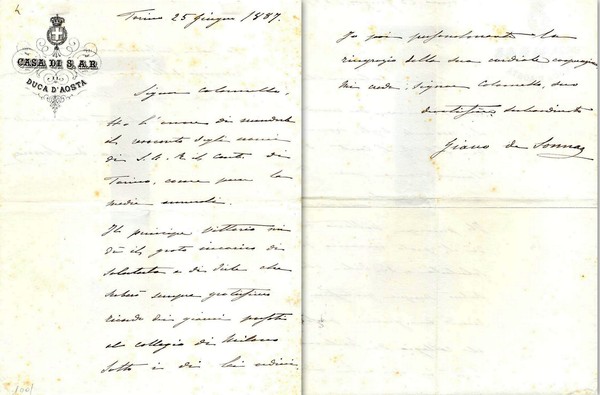 CASA DI S.A.R.
IL
DUCA D'AOSTA
Torino 25 giugno 1887.
Signor Colonnello,
Ho l'onore di mandarle
il concento degli esami
di S. A. R. il Conte di
Torino, come pure la
media annuale.
Il principe Vittorio mi
dà il grato incarico di
salutarla e di dirle che
serberà sempre gratissimo
ricordo dei giorni passati
al collegio di Milano
sotto i di lei ordini.
Io poi personalmente la
ringrazio della sua cordiale
Mi creda, signor Colonnello, suo
devotissimo subordinato
de Sonnaz